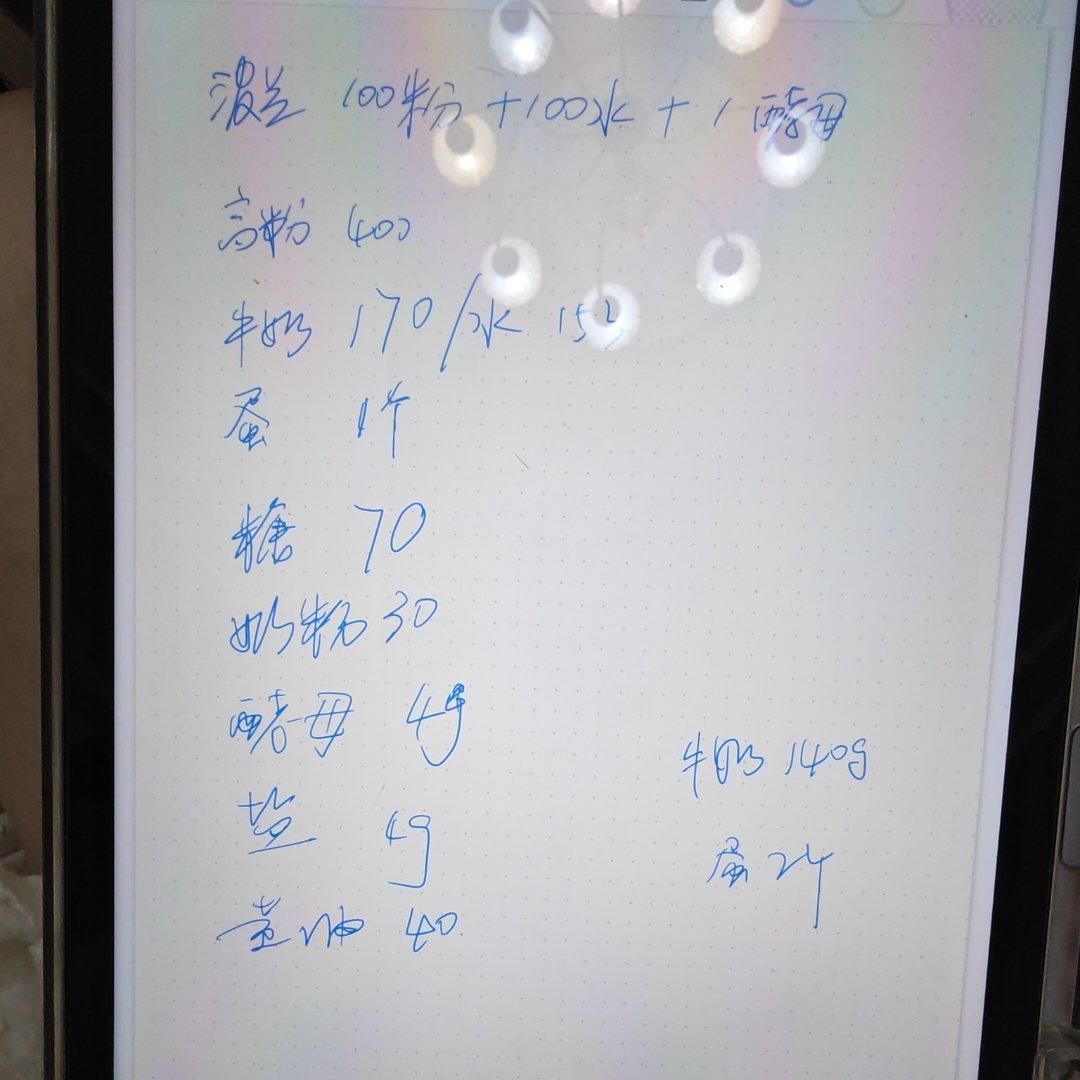 波兰 100粉 + 100水 + 1 酵母
高粉 400
牛奶 170 / 水 150
蛋 1个
糖 70
奶粉 30
酵母 4g
盐 4g
黄油 40
牛奶 140g
蛋 2个